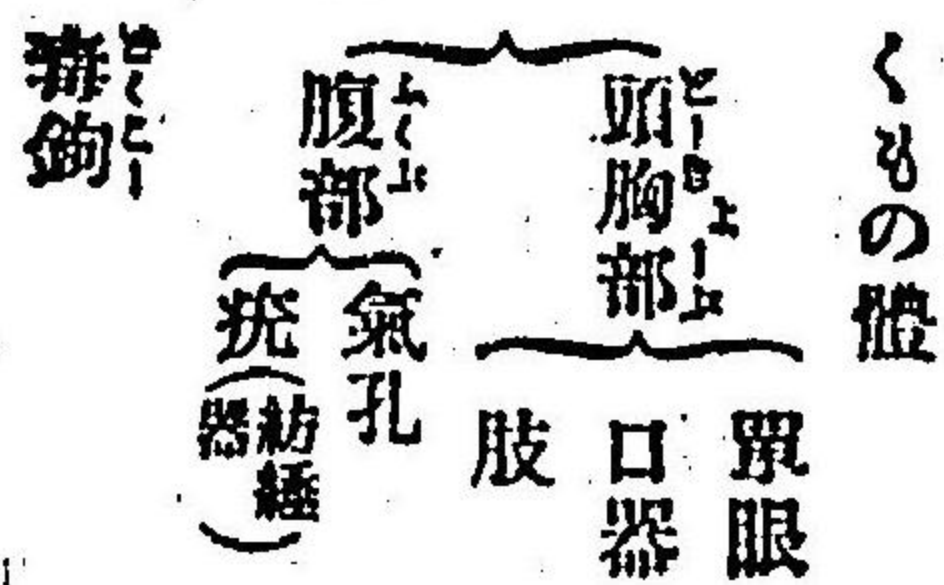 くもの體
頭胸部
とーきよーぶ
單眼
口器
肢
腹部
ふくぶ
氣孔
疣(紡
器)
毒鉤
どくこー